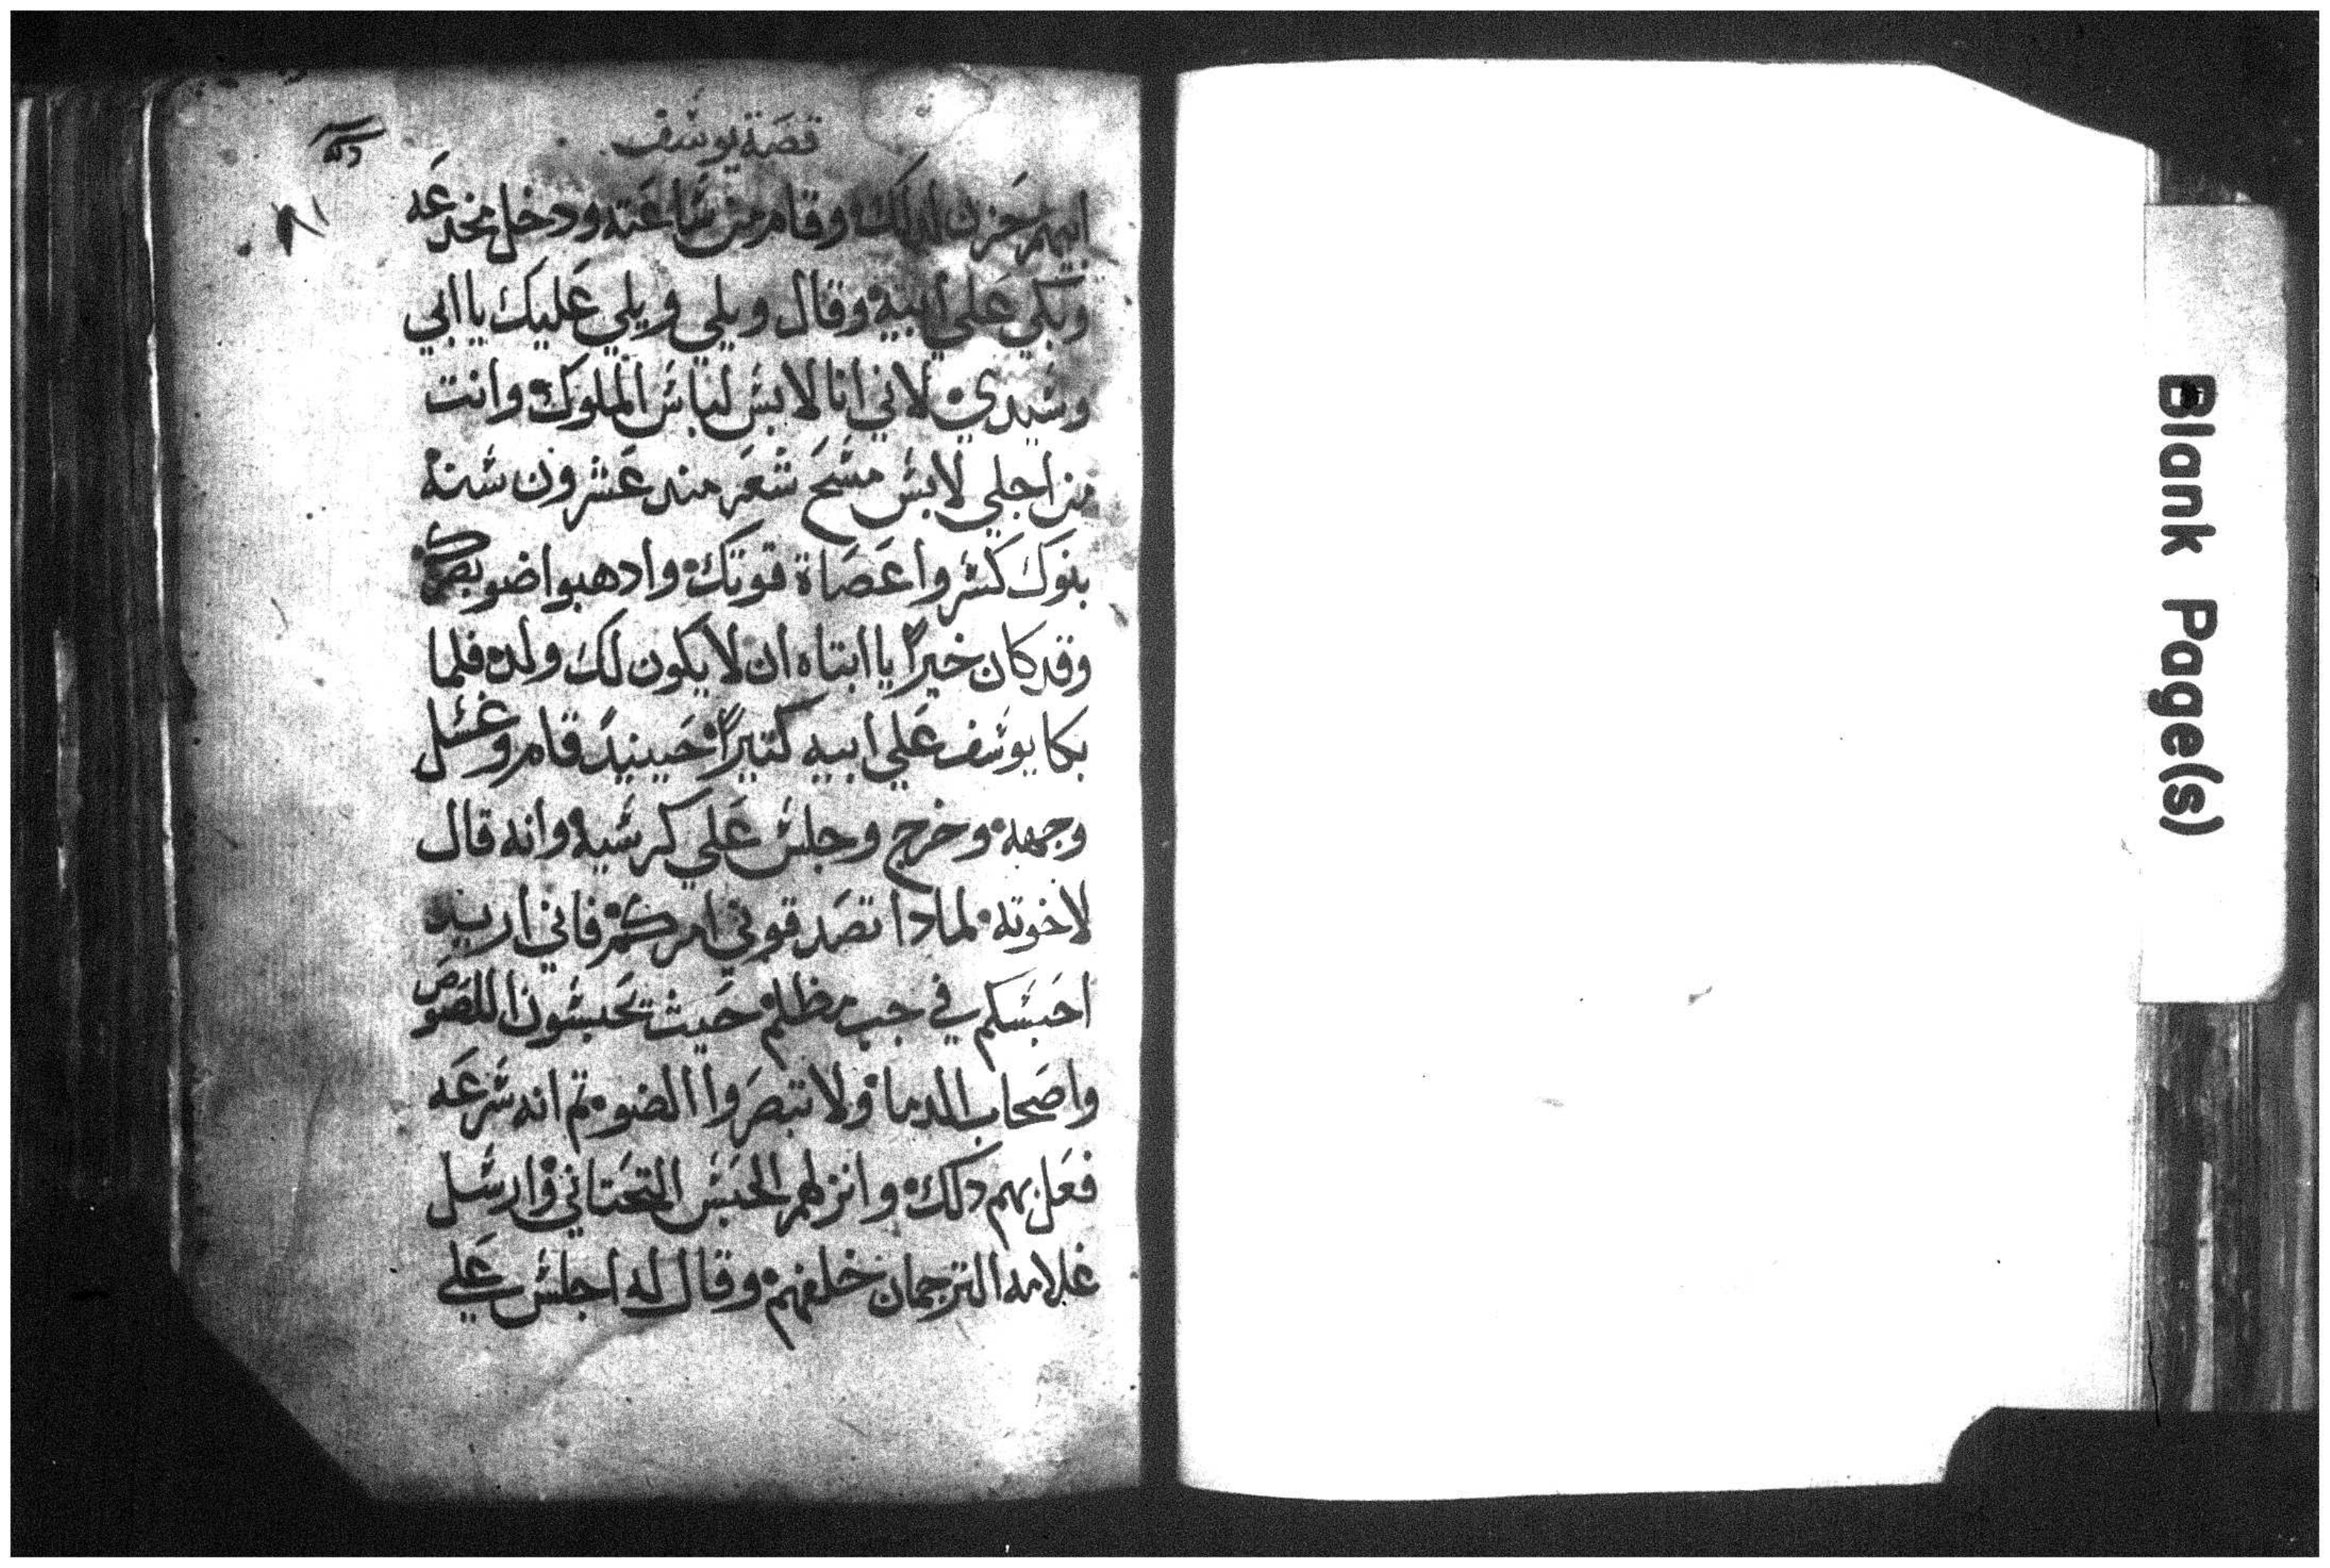 قصة يوسف
ابيهم حزن لدلك وقام من ساعته ودخل مخدعه
وبكي علي ابيه وقال ويلي ويلي عليك يا ابي
وسيدي لاني انا لابس لباس الملوك وانت
من اجلي لابس مسح شعر مند عشرون سنة
بنوك كسروا عصاة قوتك وادهبوا ضو بصرك
وقد كان خيراً يا ابتاه ان لا يكون لك ولد فلما
بكا يوسف علي ابيه كتيراً حينيدً قام وغسل
وجهه وخرج وجلس علي كرسيه وانه قال
لاخوته لمادا تصدقوني امركم فاني اريد
احبسكم في جب مظلم حيث تحبسون اللصوص
واصحاب الدما ولا تبصروا الضو تم انه سرعه
فعل بهم دلك وانزلهم الحبس التحتاني وارسل
غلامه الترجمان خلفهم وقال له اجلس علي
Blank Page(s)